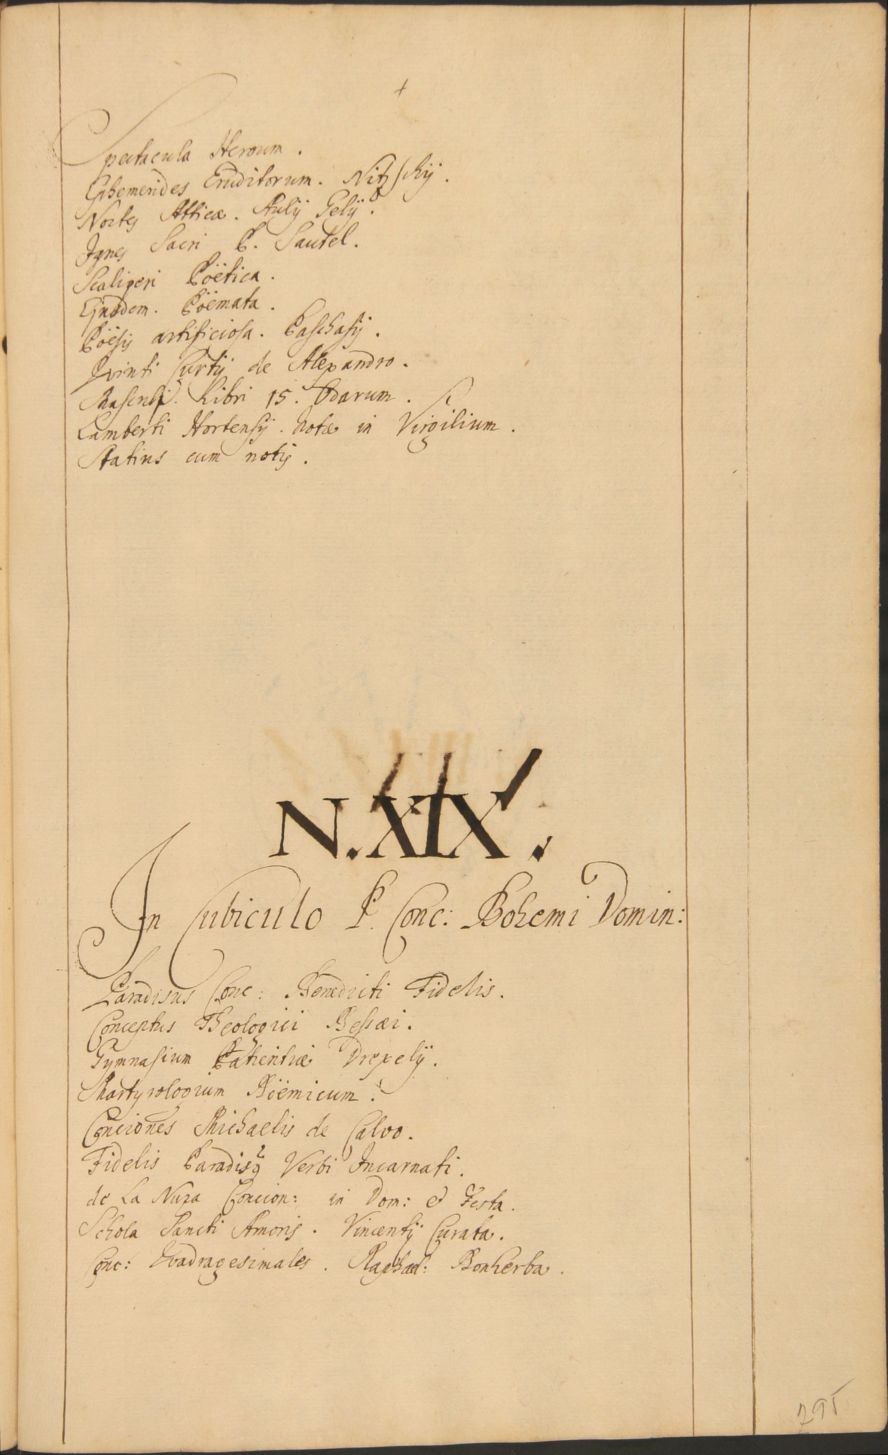 +
Spectacula Heroum.
Ephemerides Eruditorum. Nitzschij.
Noctes Atticæ. Aulij Gelij.
Ignes Sacri P. Sautel.
Scaligeri Poëtica.
Ejusdem. Poëmata.
Poësis artificiosa. Paschasij.
Quinti Curtij de Alexandro.
Masenij. Libri 15. Odarum.
Lamberti Hortensij. notæ in Virgilium.
Statius cum notis.
N. XIX.
In Cubiculo P. Conc: Bohemi Domin:
Paradisus Conc: Benedicti Fidelis.
Conceptus Theologici Bessæi.
Gymnasium Patientiæ Drexelij.
Martyrologium Boëmicum.
Conciones Michaelis de Calvo.
Fidelis Paradisq Verbi Incarnati.
de La Nuza Concion: in Dom: et Festa.
Schola Sancti Amoris. Vincentij Carata.
Conc: Quadragesimales. Raphael: Bonherba.
295